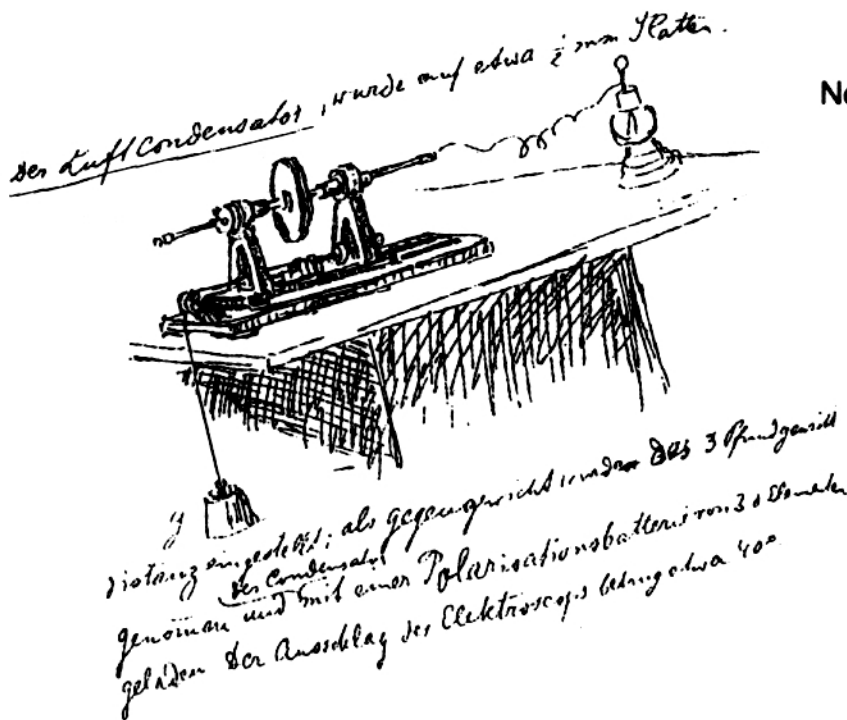 Der Luftcondensator, wurde auf etwa ½ mm Platten
No
distanz eingestellt; als gegengewicht wurden das 3 Pfundgewicht
der Condensator
genommen und mit einer Polarisationsbatterie von 30 Elementen
geladen Der Ausschlag des Elektroscops betrug etwa 40°